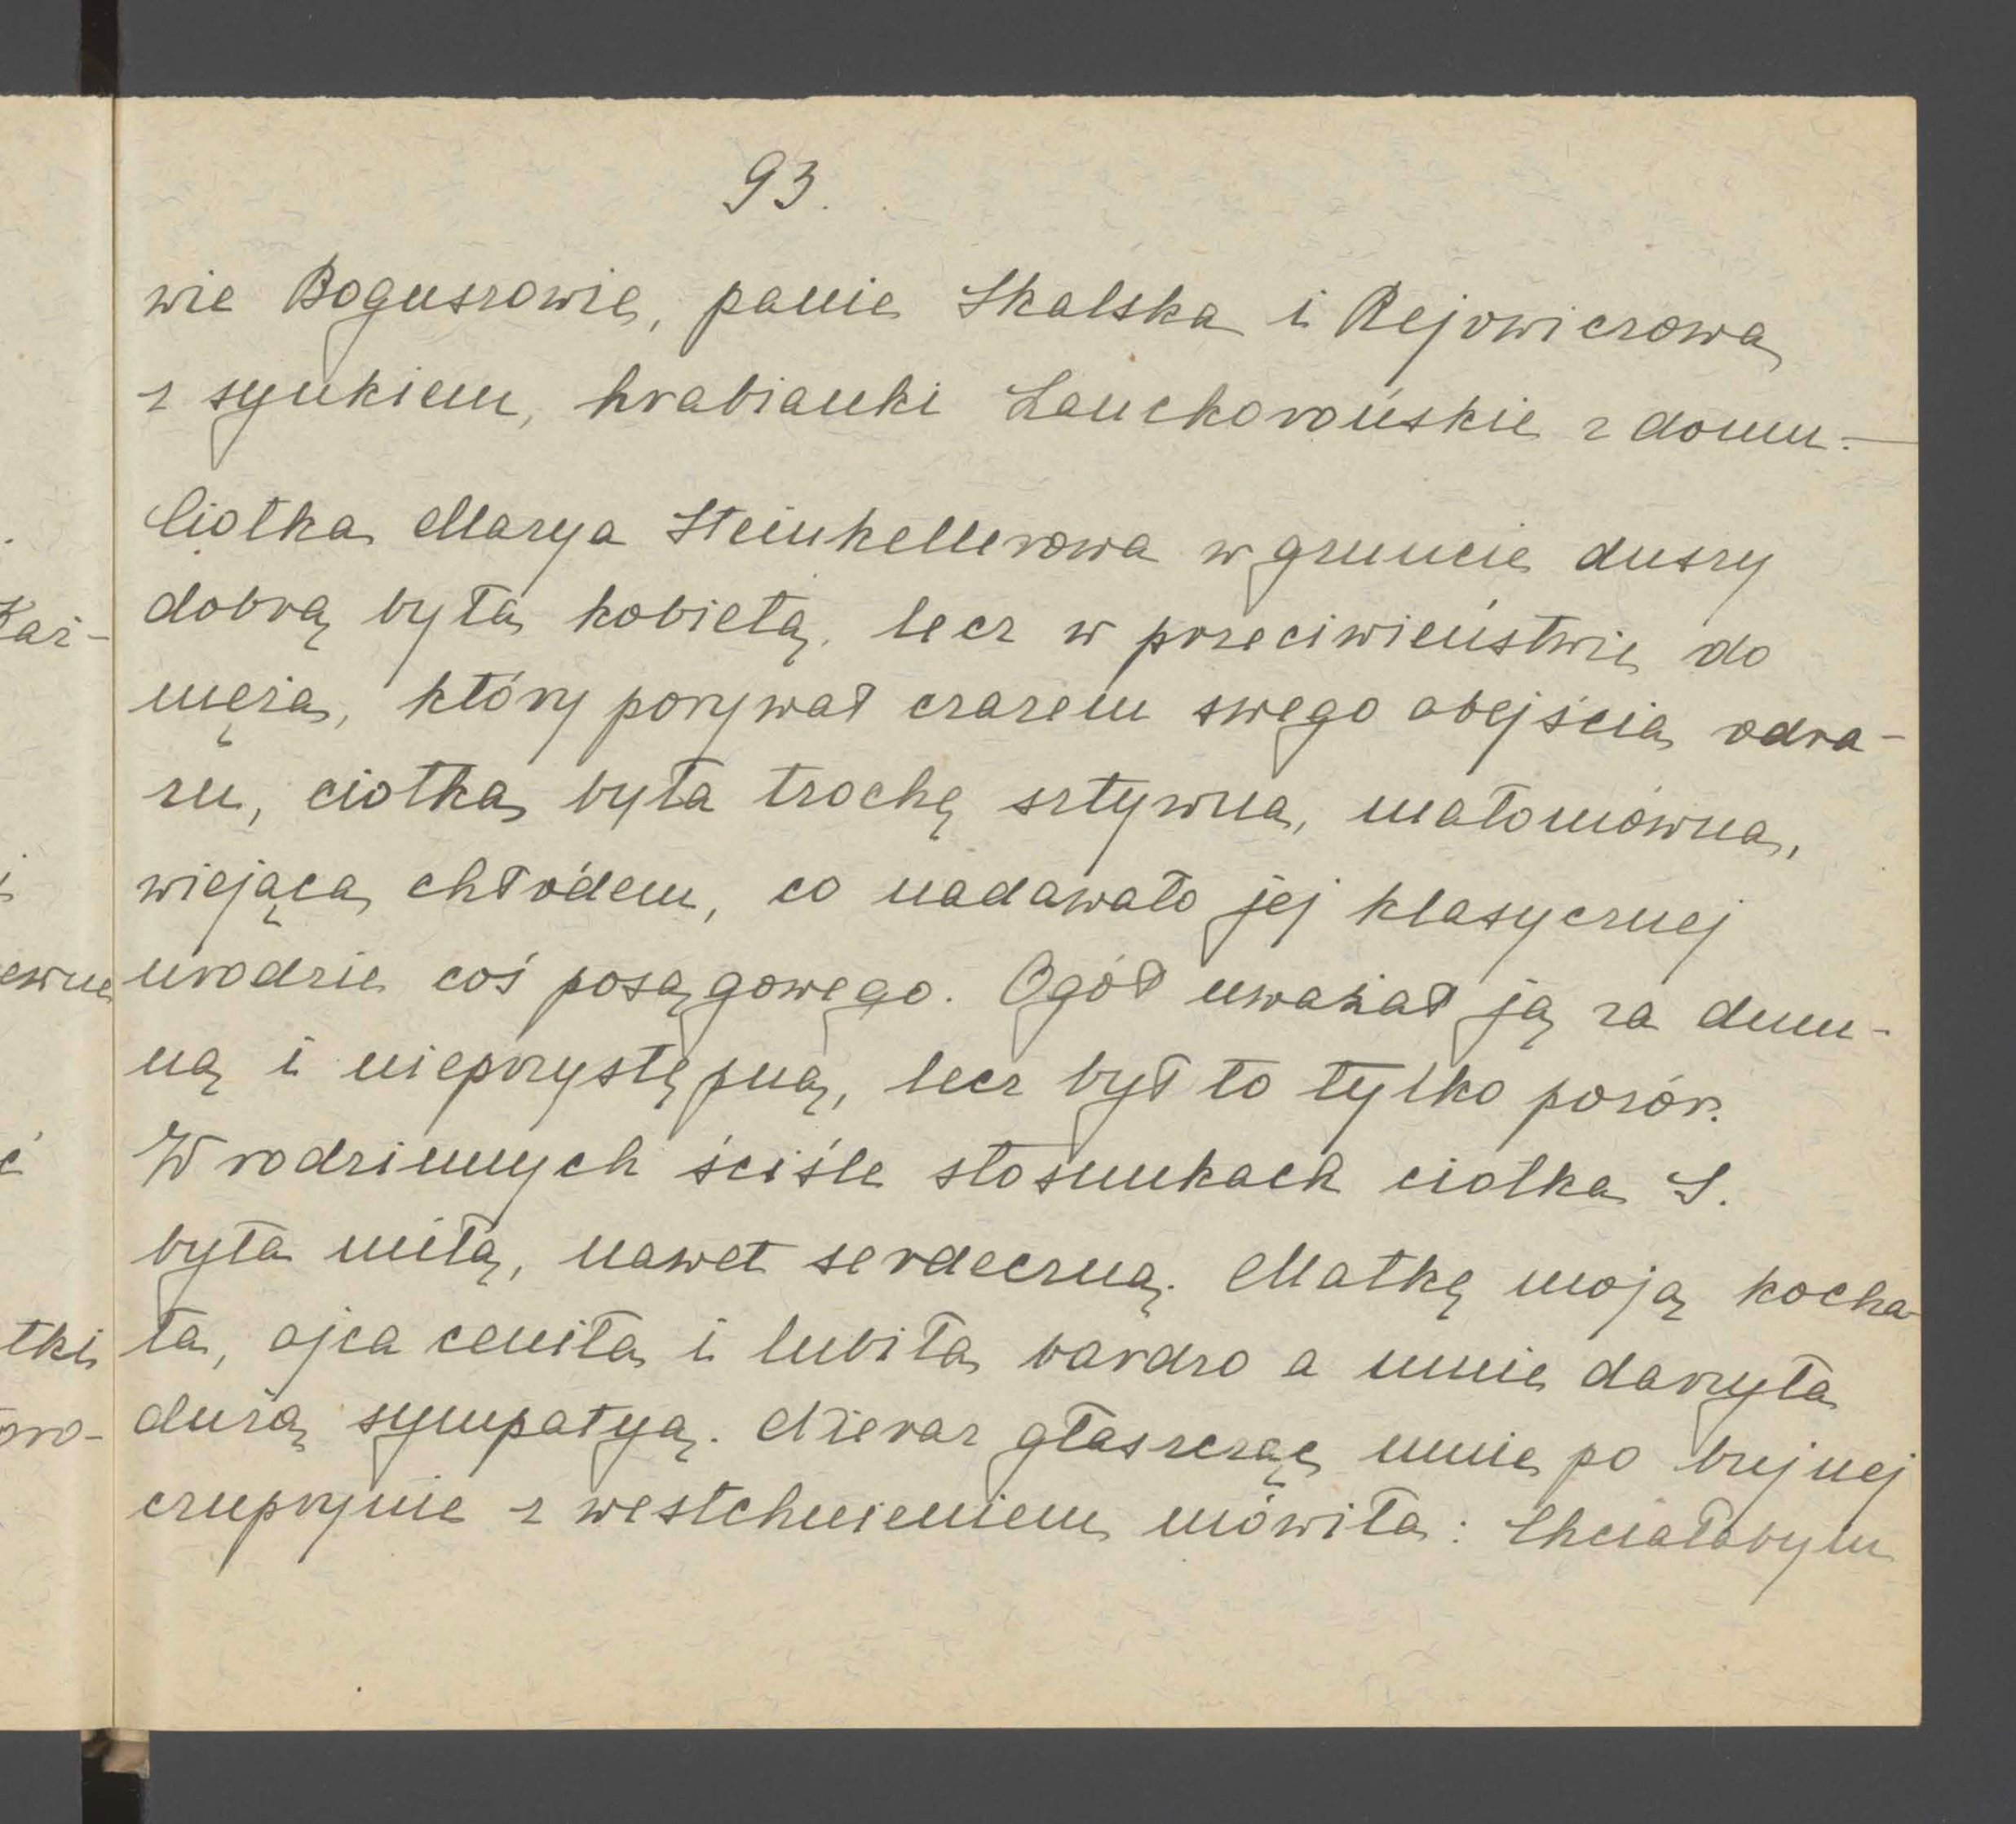 93.
wie Boguszowie, panie Skalska i Rejowiczowa
z synkiem, hrabianki Lanckorońskie z domu.—
Ciotka Marya Steinkellerowa w gruncie duszy
dobrą była kobietą, lecz w przeciwieństwie do
męża, który porywał czarem swego obejścia odra-
zu, ciotka była trochę sztywna, małomówna,
wiejąca chłodem, co nadawało jej klasycznej
urodzie coś posągowego. Ogół uważał ją za dum-
ną i nieprzystępną, lecz był to tylko pozór.
W rodzinnych ściśle stosunkach ciotka S.
była miłą, nawet serdeczną. Matkę moją kocha-
ła, ojca ceniła i lubiła bardzo a mnie darzyła
dużą sympatyą. Nieraz głaszcząc mnie po bujnej
czuprynie z westchnieniem mówiła: Chciałabym